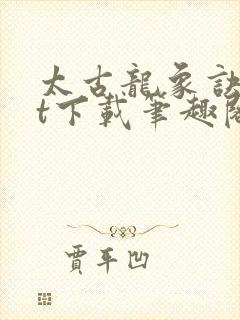 太古龍象訣
t下載筆趣閣
賈平凹